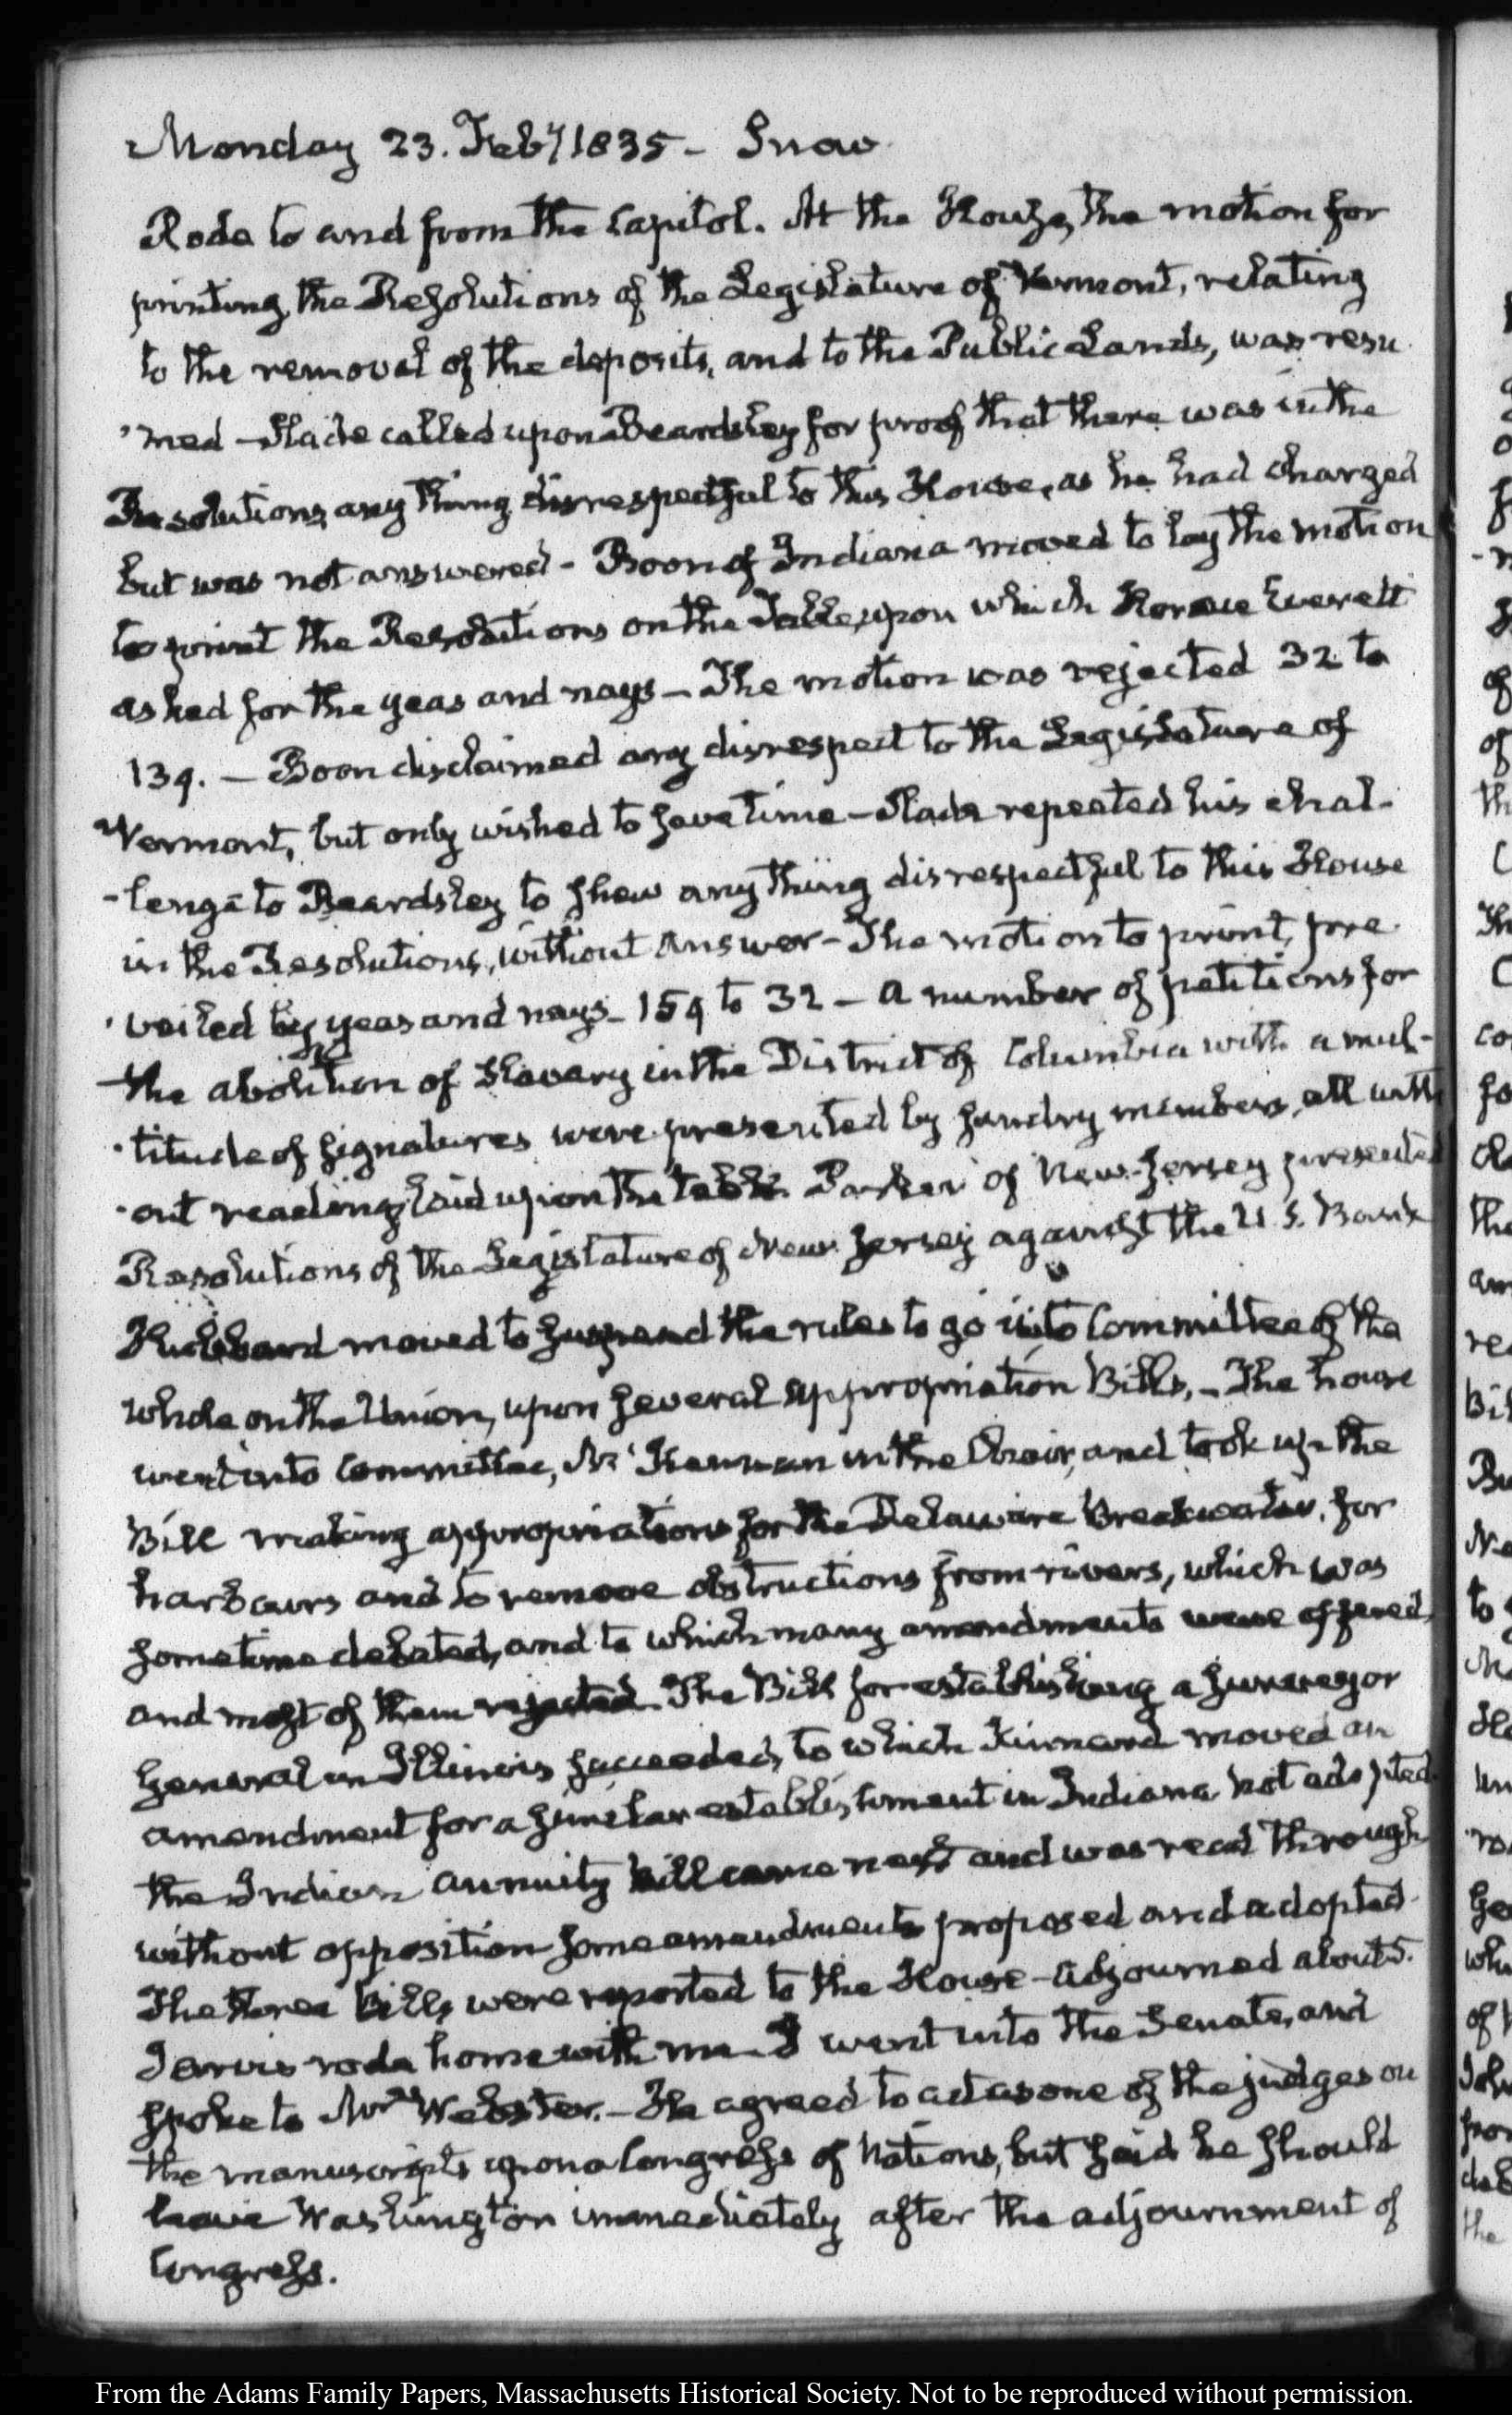 Monday 23. Feby 1835 - Snow
Rode to and from the Capitol. At the House, the motion for
printing the Resolutions of the Legislature of Vermont, relating
to the removal of the deposits, and to the Public Lands, was resu
'med - Slade called upon Beardsley for proof that there was in the
Resolutions any thing disrespectful to this House, as he had charged
but was not answered - Boon of Indiana moved to lay the motion
to print the Resolutions on the Table, upon which Horace Everett
asked for the yeas and nays - The motion was rejected 32 to
139. - Boon disclaimed any disrespect to the Legislature of
Vermont, but only wished to save time - Slade repeated his chal-
-lenge to Beardsley to shew any thing disrespectful to this House
in the Resolutions, without answer - The motion to print, pre
'vailed by yeas and nays - 159 to 32 - A number of petitions for
the abolition of Slavery in the District of Columbia with a mul-
-titude of signatures were presented by sundry members, all with
-out reading, laid upon the table. Parker of New-Jersey presented
Resolutions of the Legislature of New Jersey against the U.S. Bank
Hubbard moved to suspend the rules to go into Committee of the
whole on the Union, upon several appropriation Bills, - The house
went into Committee, Mr in the Chair, and took up the
Bill making appropriations for the Delaware Breakwater, for
harbours and to remove obstructions from rivers, which was
sometime debated, and to which many amendments were offered,
and most of them rejected. The Bill for establishing a surveyor
General in Illinois succeeded, to which Kinnard moved an
amendment for a similar establishment in Indiana not adopted.
the Indian annuity bill came next and was read through
without opposition some amendments proposed and adopted.
The three Bills were reported to the House - Adjourned about 5.
Jarvis rode home with me - I went into the Senate, and
spoke to Mr Webster. - He agreed to act as one of the judges on
the manuscripts upon a Congress of Nations, but said he should
leave Washington immediately after the adjournment of
Congress.
From the Adams Family Papers, Massachusetts Historical Society. Not to be reproduced without permission.